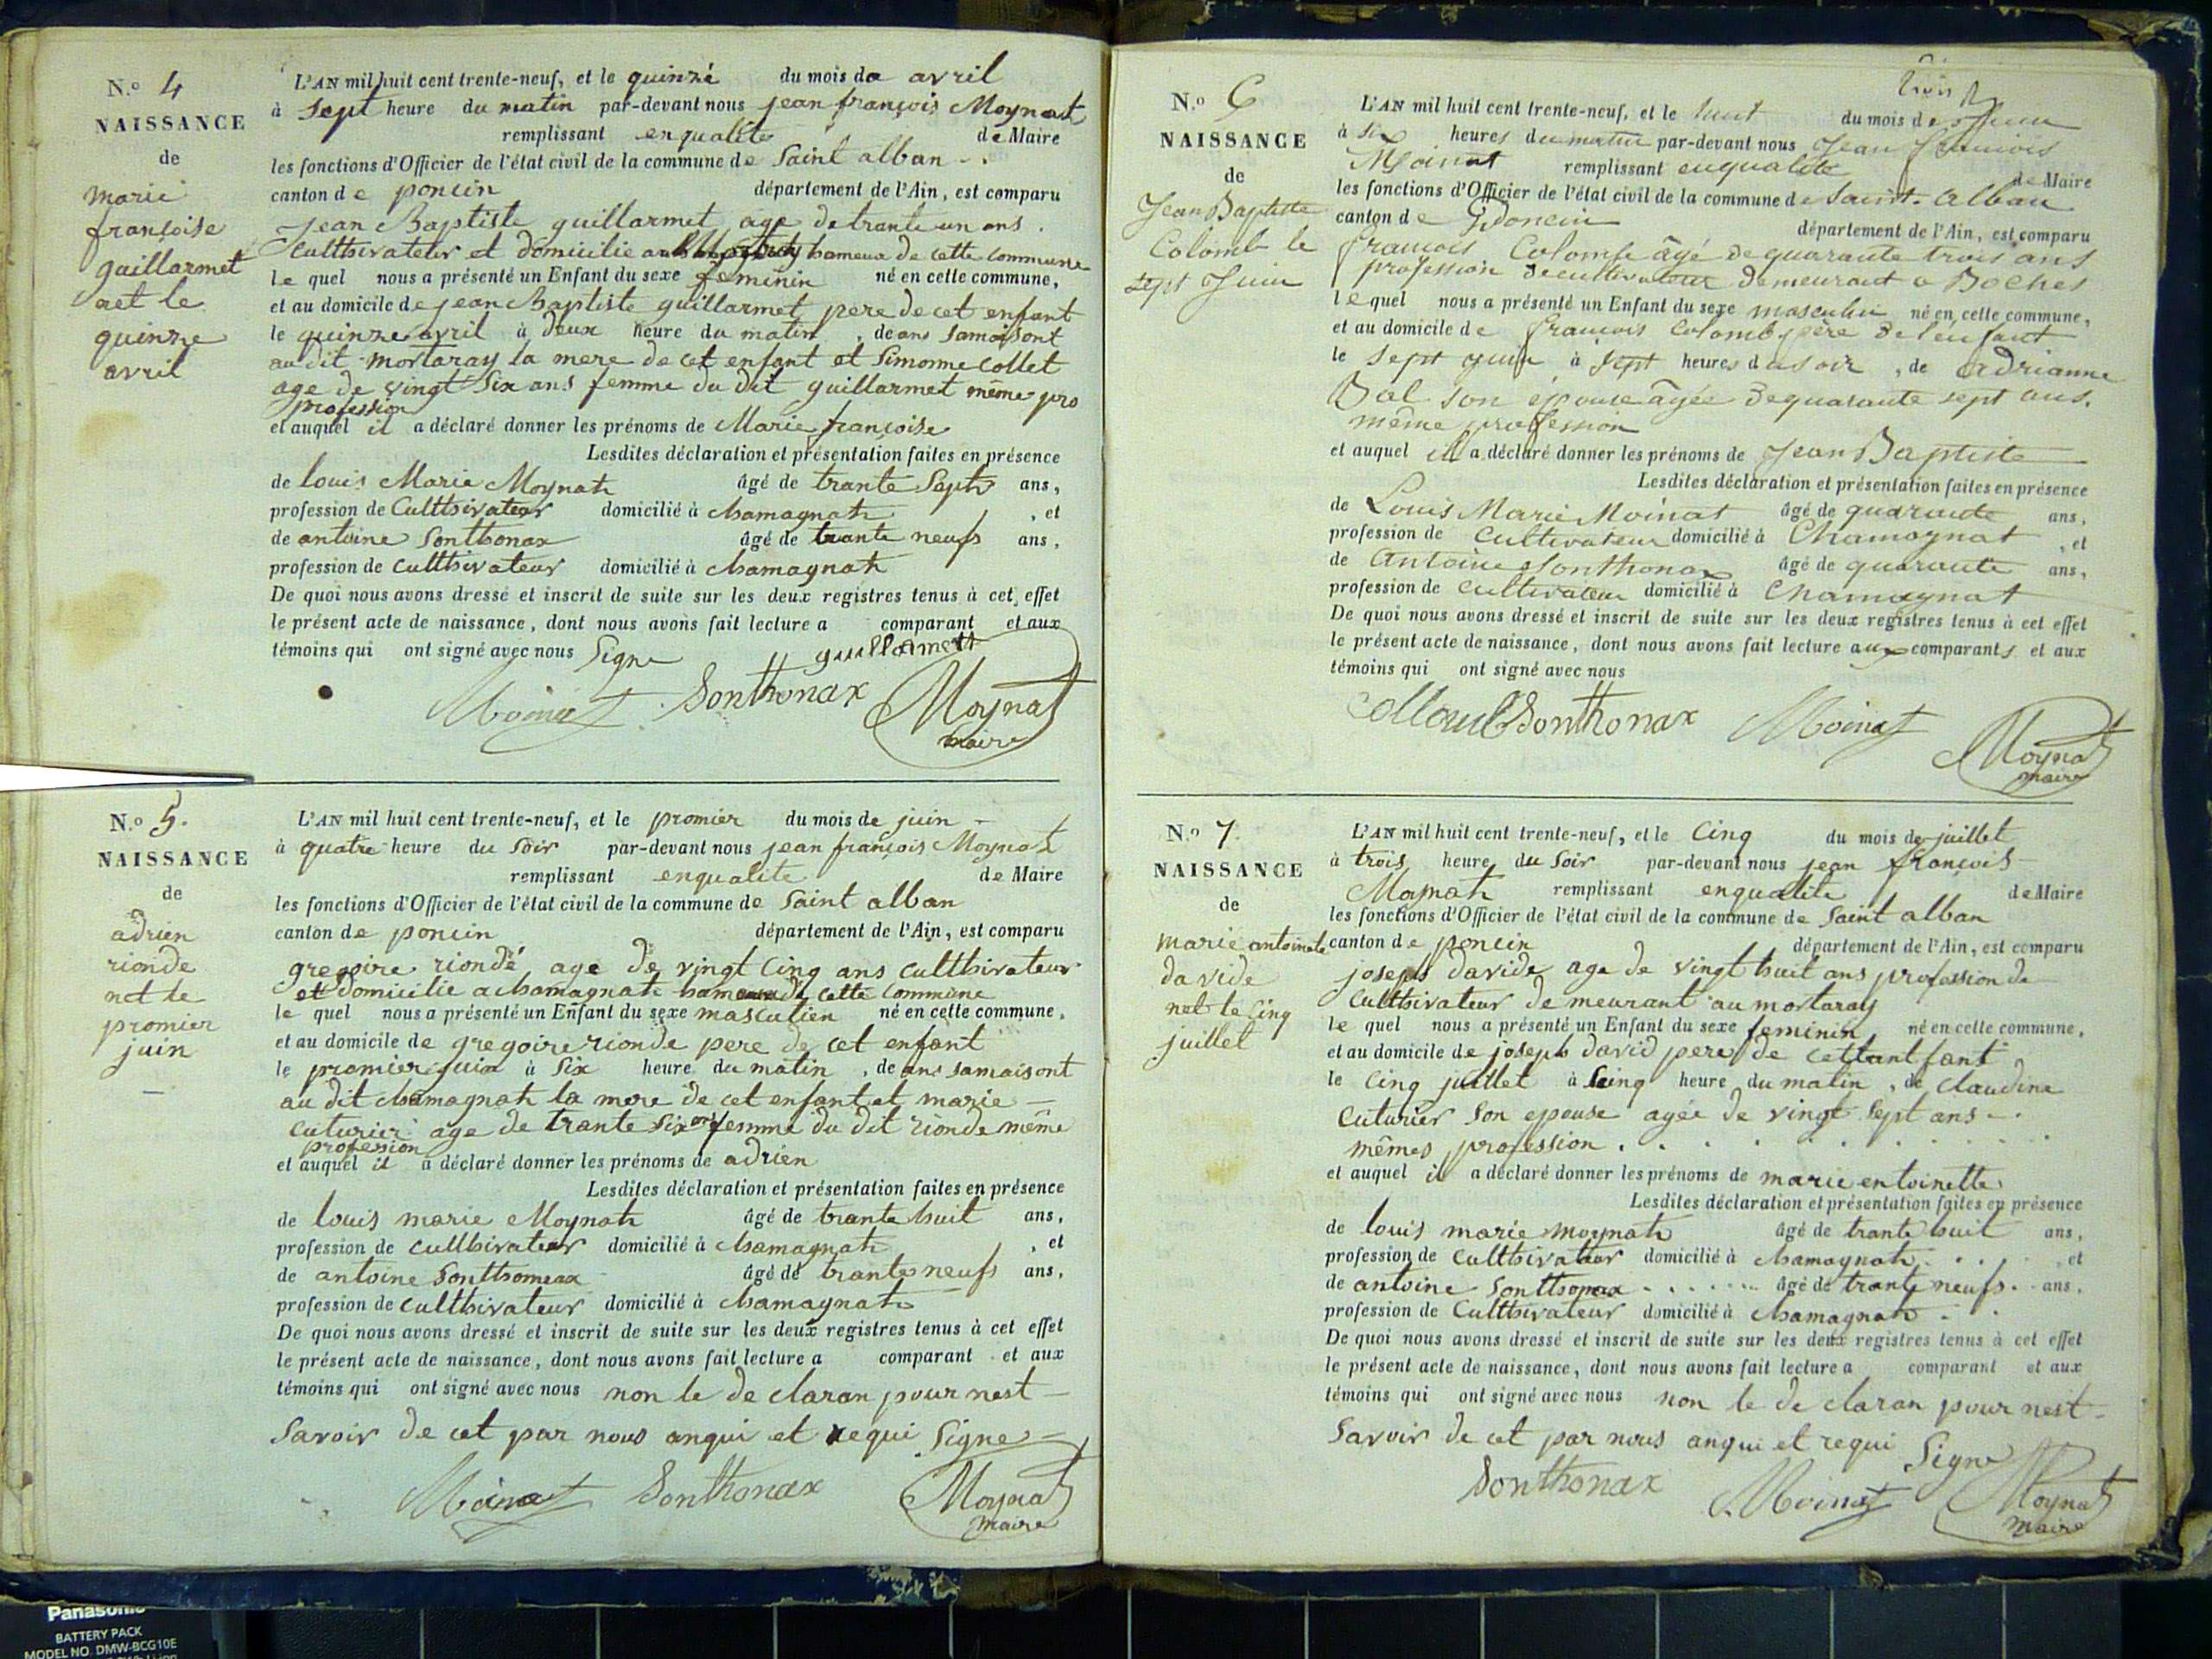 N.o 4
NAISSANCE
de
marie
françoise
guillarmet
net le
quinze
avril
L'AN mil huit cent trente-neuf, et le quinzé du mois de avril
à sept heure du matin par-devant nous jean françois Moynat
remplissant enqualite de Maire
les fonctions d'Officier de l'état civil de la commune de Saint alban
canton de poncin département de l'Ain, est comparu
jean Baptiste guillarmet age de trante un ans.
culthivateur et domicilie au hameux de cette commune
le quel nous a présenté un Enfant du sexe feminin né en cette commune,
et au domicile de jean Baptiste guillarmet pere de cet enfant
le quinze avril à deux heure du matin, de ans samaisont
au dit mortaray la mere de cet enfant et Simonne collet
age de vingt Six ans femme du dit guillarmet même pro
profession
et auquel il a déclaré donner les prénoms de Marie françoise
Lesdites déclaration et présentation faites en présence
de louis Marie Moynat âgé de trante Sept ans,
profession de Culthivateur domicilié à chamagnat, et
de antoine Sonthonax âgé de trante neufs ans,
profession de culthivateur domicilié à chamagnat
De quoi nous avons dressé et inscrit de suite sur les deux registres tenus à cet effet
le présent acte de naissance, dont nous avons fait lecture a comparant et aux
témoins qui ont signé avec nous Signe guillarmet
Moinat Sonthonax Moynat
maire
N.o 5.
NAISSANCE
de
adrien
rionde
net le
promier
juin
L'AN mil huit cent trente-neuf, et le promier du mois de juin
à quatre heure du soir par-devant nous jean françois Moynat
remplissant enqualite de Maire
les fonctions d'Officier de l'état civil de la commune de Saint alban
canton de poncin département de l'Ain, est comparu
gregoire riondé age de vingt cinq ans culthivateur
et domicilie a chamagnat hameux de cette commune
le quel nous a présenté un Enfant du sexe masculien né en cette commune,
et au domicile de gregoire rionde pere de cet enfant
le promier juin à Six heure du matin, de ans samaisont
au dit chamagnat la mere de cet enfant et marie
cuturier age de trante Six ans femme du dit rionde même
profession
et auquel il a déclaré donner les prénoms de adrien
Lesdites déclaration et présentation faites en présence
de louis marie Moynat âgé de trante huit ans,
profession de culthivateur domicilié à chamagnat, et
de antoine Sonthomax âgé de trante neufs ans,
profession de culthivateur domicilié à chamagnat
De quoi nous avons dressé et inscrit de suite sur les deux registres tenus à cet effet
le présent acte de naissance, dont nous avons fait lecture a comparant et aux
témoins qui ont signé avec nous non le de claran pour nest
Savoir de cet par nous anqui et requi Signe
Moinat Sonthonax Moynat
maire
N.o 6
NAISSANCE
de
Jean Baptiste
Colomb le
sept Juin
L'AN mil huit cent trente-neuf, et le huit du mois de Juin
à six heures du matin par-devant nous Jean François
Moinat remplissant enqualité de Maire
les fonctions d'Officier de l'état civil de la commune de Saint-Alban
canton de Poncin département de l'Ain, est comparu
françois Colomb âgé de quarante trois ans
profession de cultivateur demeurant a Boches
lequel nous a présenté un Enfant du sexe masculin né en cette commune,
et au domicile de françois Colomb père de l'enfant
le sept juin à sept heures du soir, de Adrianne
Bal son épouse âgée de quarante sept ans.
même profession
et auquel il a déclaré donner les prénoms de Jean Baptiste
Lesdites déclaration et présentation faites en présence
de Louis Marie Moinat âgé de quarante ans,
profession de cultivateur domicilié à Chamagnat, et
de Antoine Sonthonax âgé de quarante ans,
profession de cultivateur domicilié à Chamagnat
De quoi nous avons dressé et inscrit de suite sur les deux registres tenus à cet effet
le présent acte de naissance, dont nous avons fait lecture aux comparants et aux
témoins qui ont signé avec nous
Collomb Sonthonax Moinat
Moynat
maire
N.o 7.
NAISSANCE
de
marie antoinete
davide
net le cinq
juillet
L'AN mil huit cent trente-neuf, et le Cinq du mois de juillet
à trois heure du Soir par-devant nous jean françois
Moynat remplissant enqualite de Maire
les fonctions d'Officier de l'état civil de la commune de Saint alban
canton de poncin département de l'Ain, est comparu
joseph davide age de vingt huit ans profession de
culthivateur demeurant au mortaray
le quel nous a présenté un Enfant du sexe feminin né en cette commune,
et au domicile de joseph david pere de cettant fant
le cinq juillet à Scinq heure du matin, de claudine
cuturier son epouse agée de vingt Sept ans
mêmes profession
et auquel il a déclaré donner les prénoms de marie entoinette
Lesdites déclaration et présentation faites en présence
de louis marie moynat âgé de trante huit ans,
profession de culthivateur domicilié à chamagnat et
de antoine Sonthonax âgé de trante neufs ans,
profession de Culthivateur domicilié à chamagnat
De quoi nous avons dressé et inscrit de suite sur les deux registres tenus à cet effet
le présent acte de naissance, dont nous avons fait lecture a comparant et aux
témoins qui ont signé avec nous non le de claran pour nest
Savoir de cet par nous anqui et requi Signe
Sonthonax Moinat Moynat
maire
Panasonic
BATTERY PACK
MODEL NO. DMW-BCG10E